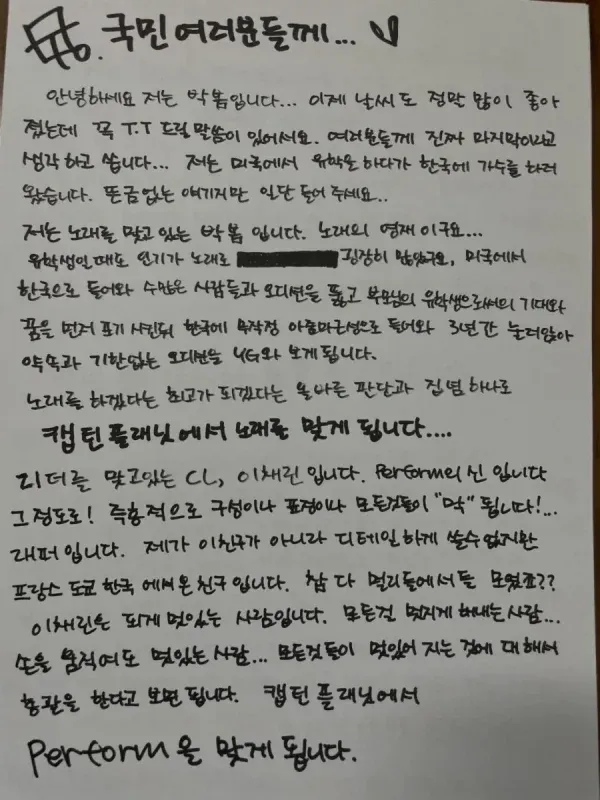 국민 여러분들께...
안녕하세요 저는 박봄입니다... 이제 날씨도 정말 많이 좋아
졌는데 꼭 T.T 드릴말씀이 있어서요. 여러분들께 진짜 마지막이라고
생각하고 씁니다... 저는 미국에서 유학을 하다가 한국에 가수를 하러
왔습니다. 뜬금없는 얘기지만 일단 들어 주세요..
저는 노래를 맞고 있는 박봄 입니다. 노래의 영재 이구요...
유학생일때도 인기가 노래로 굉장히 많았구요, 미국에서
한국으로 들어와 수많은 사람들과 오디션을 뚫고 부모님의 유학생으로써의 기대와
꿈을 먼저 포기 시킨뒤 한국에 무작정 아줌마근성으로 들어와 3년간 눌러앉아
약속과 기한없는 오디션을 YG와 보게 됩니다.
노래를 하겠다는 최고가 되겠다는 올바른 판단과 집념 하나로
캡틴 플래닛에서 노래를 맞게 됩니다....
리더를 맞고있는 CL, 이채린 입니다. Perform의 신 입니다
그정도로! 즉흥적으로 구성이나 표정이나 모든것들이 "막" 됩니다!...
래퍼입니다. 제가 이친구가 아니라 디테일하게 쓸수없지만
프랑스 도쿄 한국 에서온 친구입니다. 참 다 멀리들에서들 모였죠??
이채린은 되게 멋있는 사람입니다. 모든걸 멋지게 해내는사람...
손을 움직여도 멋있는 사람... 모든것들이 멋있어 지는 것에 대해서
총괄을 한다고 보면 됩니다. 캡틴 플래닛에서
Perform을 맞게 됩니다.